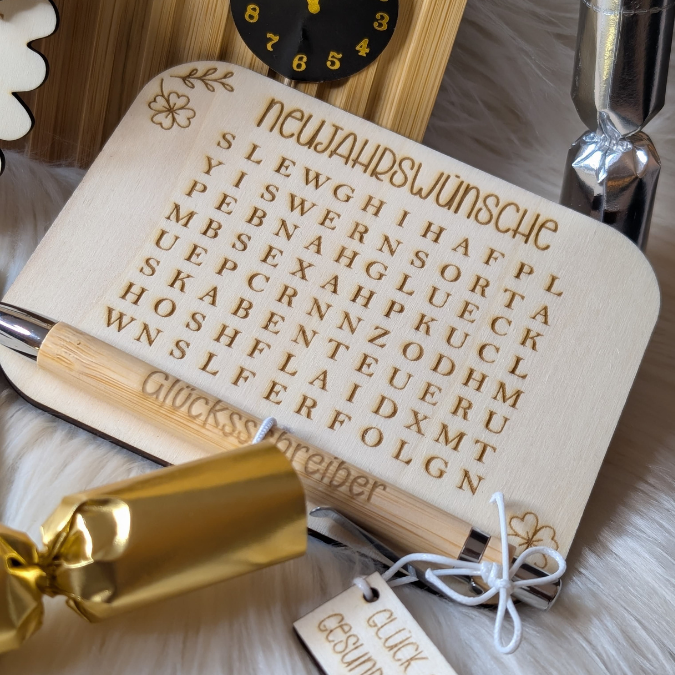 8 7 6 5 4 3
NEUJAHRSWÜNSCHE
S L E W G H I H A F P L
Y I S W E R N S O R T A
P E B N A H G L U E C K
M B S E X A H P K U C L
U E P C R N N Z O D H M
S K A B E N T E U E R U
H O S H F L A I D X M T
W N S L F E R F O L G N
Glücksschreiber
GLÜCK